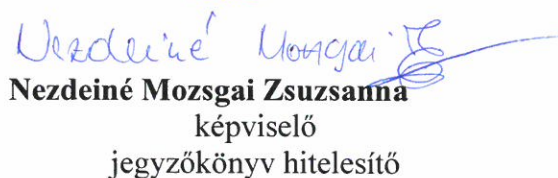 Nezdeiné Mozsgai Zs
Nezdeiné Mozsgai Zsuzsanna
képviselő
jegyzőkönyv hitelesítő